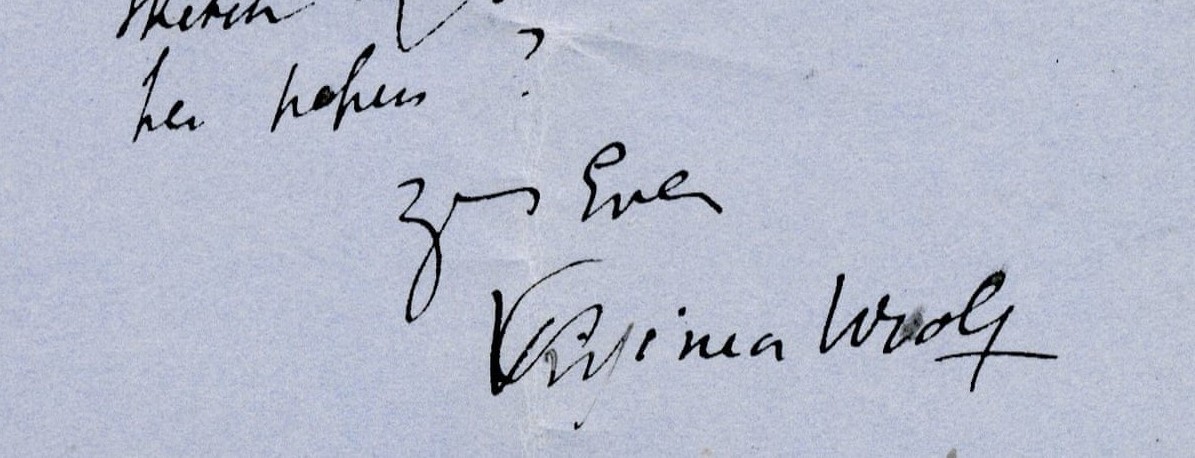 sketch
her papers ?
Yrs Ever
Virginia Woolf